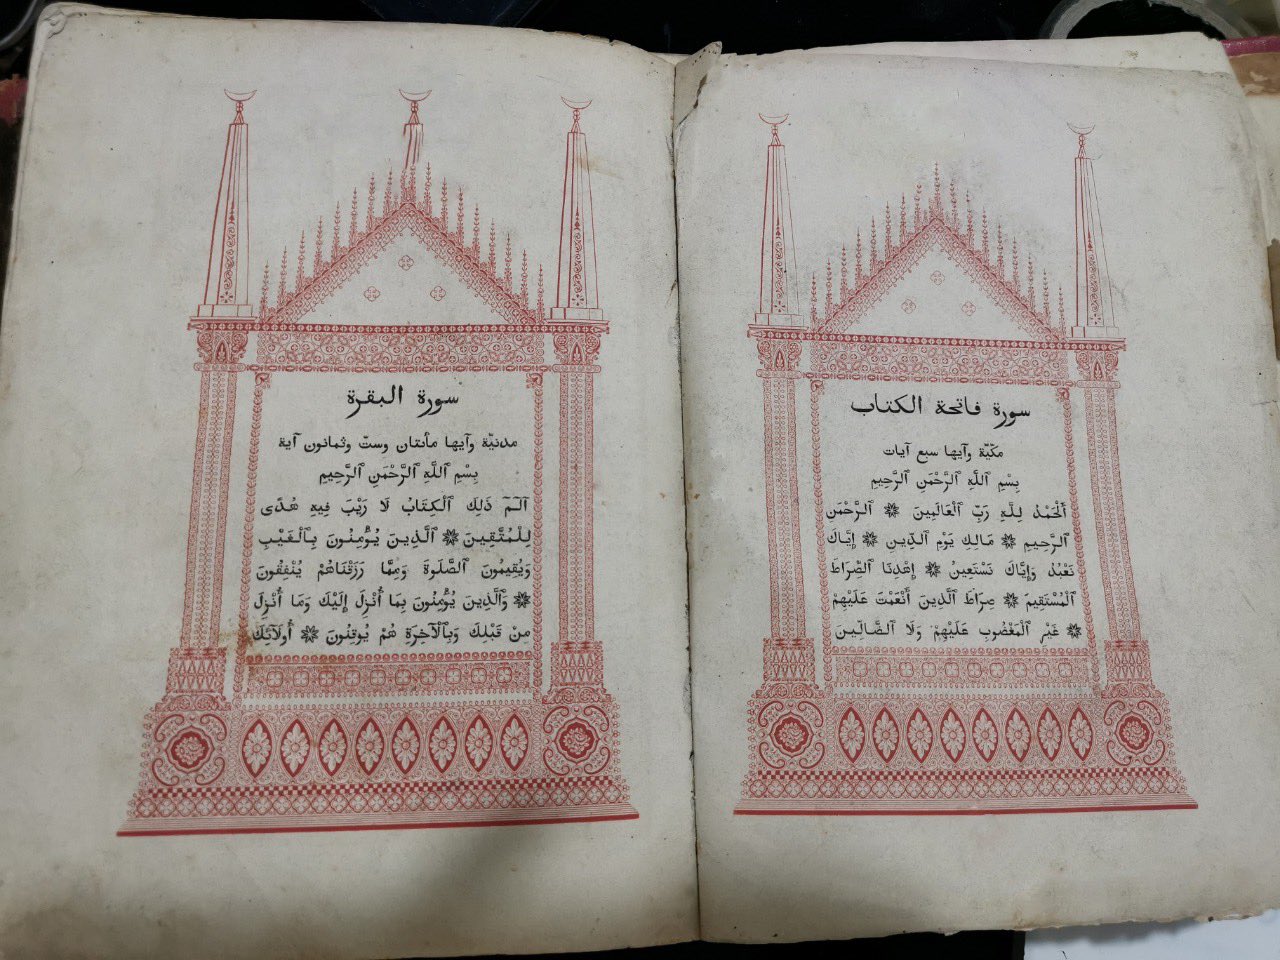 سورة فاتحة الكتاب
مكّيّة وآيها سبع آيات
بِسْمِ ٱللَّهِ ٱلرَّحْمَنِ ٱلرَّحِيمِ
ٱلْحَمْدُ لِلَّهِ رَبِّ ٱلْعَالَمِينَ ۞ ٱلرَّحْمَنِ
ٱلرَّحِيمِ ۞ مَالِكِ يَوْمِ ٱلدِّينِ ۞ إِيَّاكَ
نَعْبُدُ وَإِيَّاكَ نَسْتَعِينُ ۞ إِهْدِنَا ٱلصِّرَاطَ
ٱلْمُسْتَقِيمَ ۞ صِرَاطَ ٱلَّذِينَ أَنْعَمْتَ عَلَيْهِمْ
۞ غَيْرِ ٱلْمَغْضُوبِ عَلَيْهِمْ وَلَا ٱلضَّالِّينَ
سورة البقرة
مدنيّة وآيها مأتان وستّ وثمانون آية
بِسْمِ ٱللَّهِ ٱلرَّحْمَنِ ٱلرَّحِيمِ
الٓمٓ ذَلِكَ ٱلْكِتَابُ لَا رَيْبَ فِيهِ هُدًى
لِلْمُتَّقِينَ ۞ ٱلَّذِينَ يُؤْمِنُونَ بِٱلْغَيْبِ
وَيُقِيمُونَ ٱلصَّلَوةَ وَمِمَّا رَزَقْنَاهُمْ يُنْفِقُونَ
۞ وَٱلَّذِينَ يُؤْمِنُونَ بِمَا أُنْزِلَ إِلَيْكَ وَمَا أُنْزِلَ
مِنْ قَبْلِكَ وَبِٱلْآخِرَةِ هُمْ يُوقِنُونَ ۞ أُولَآئِكَ